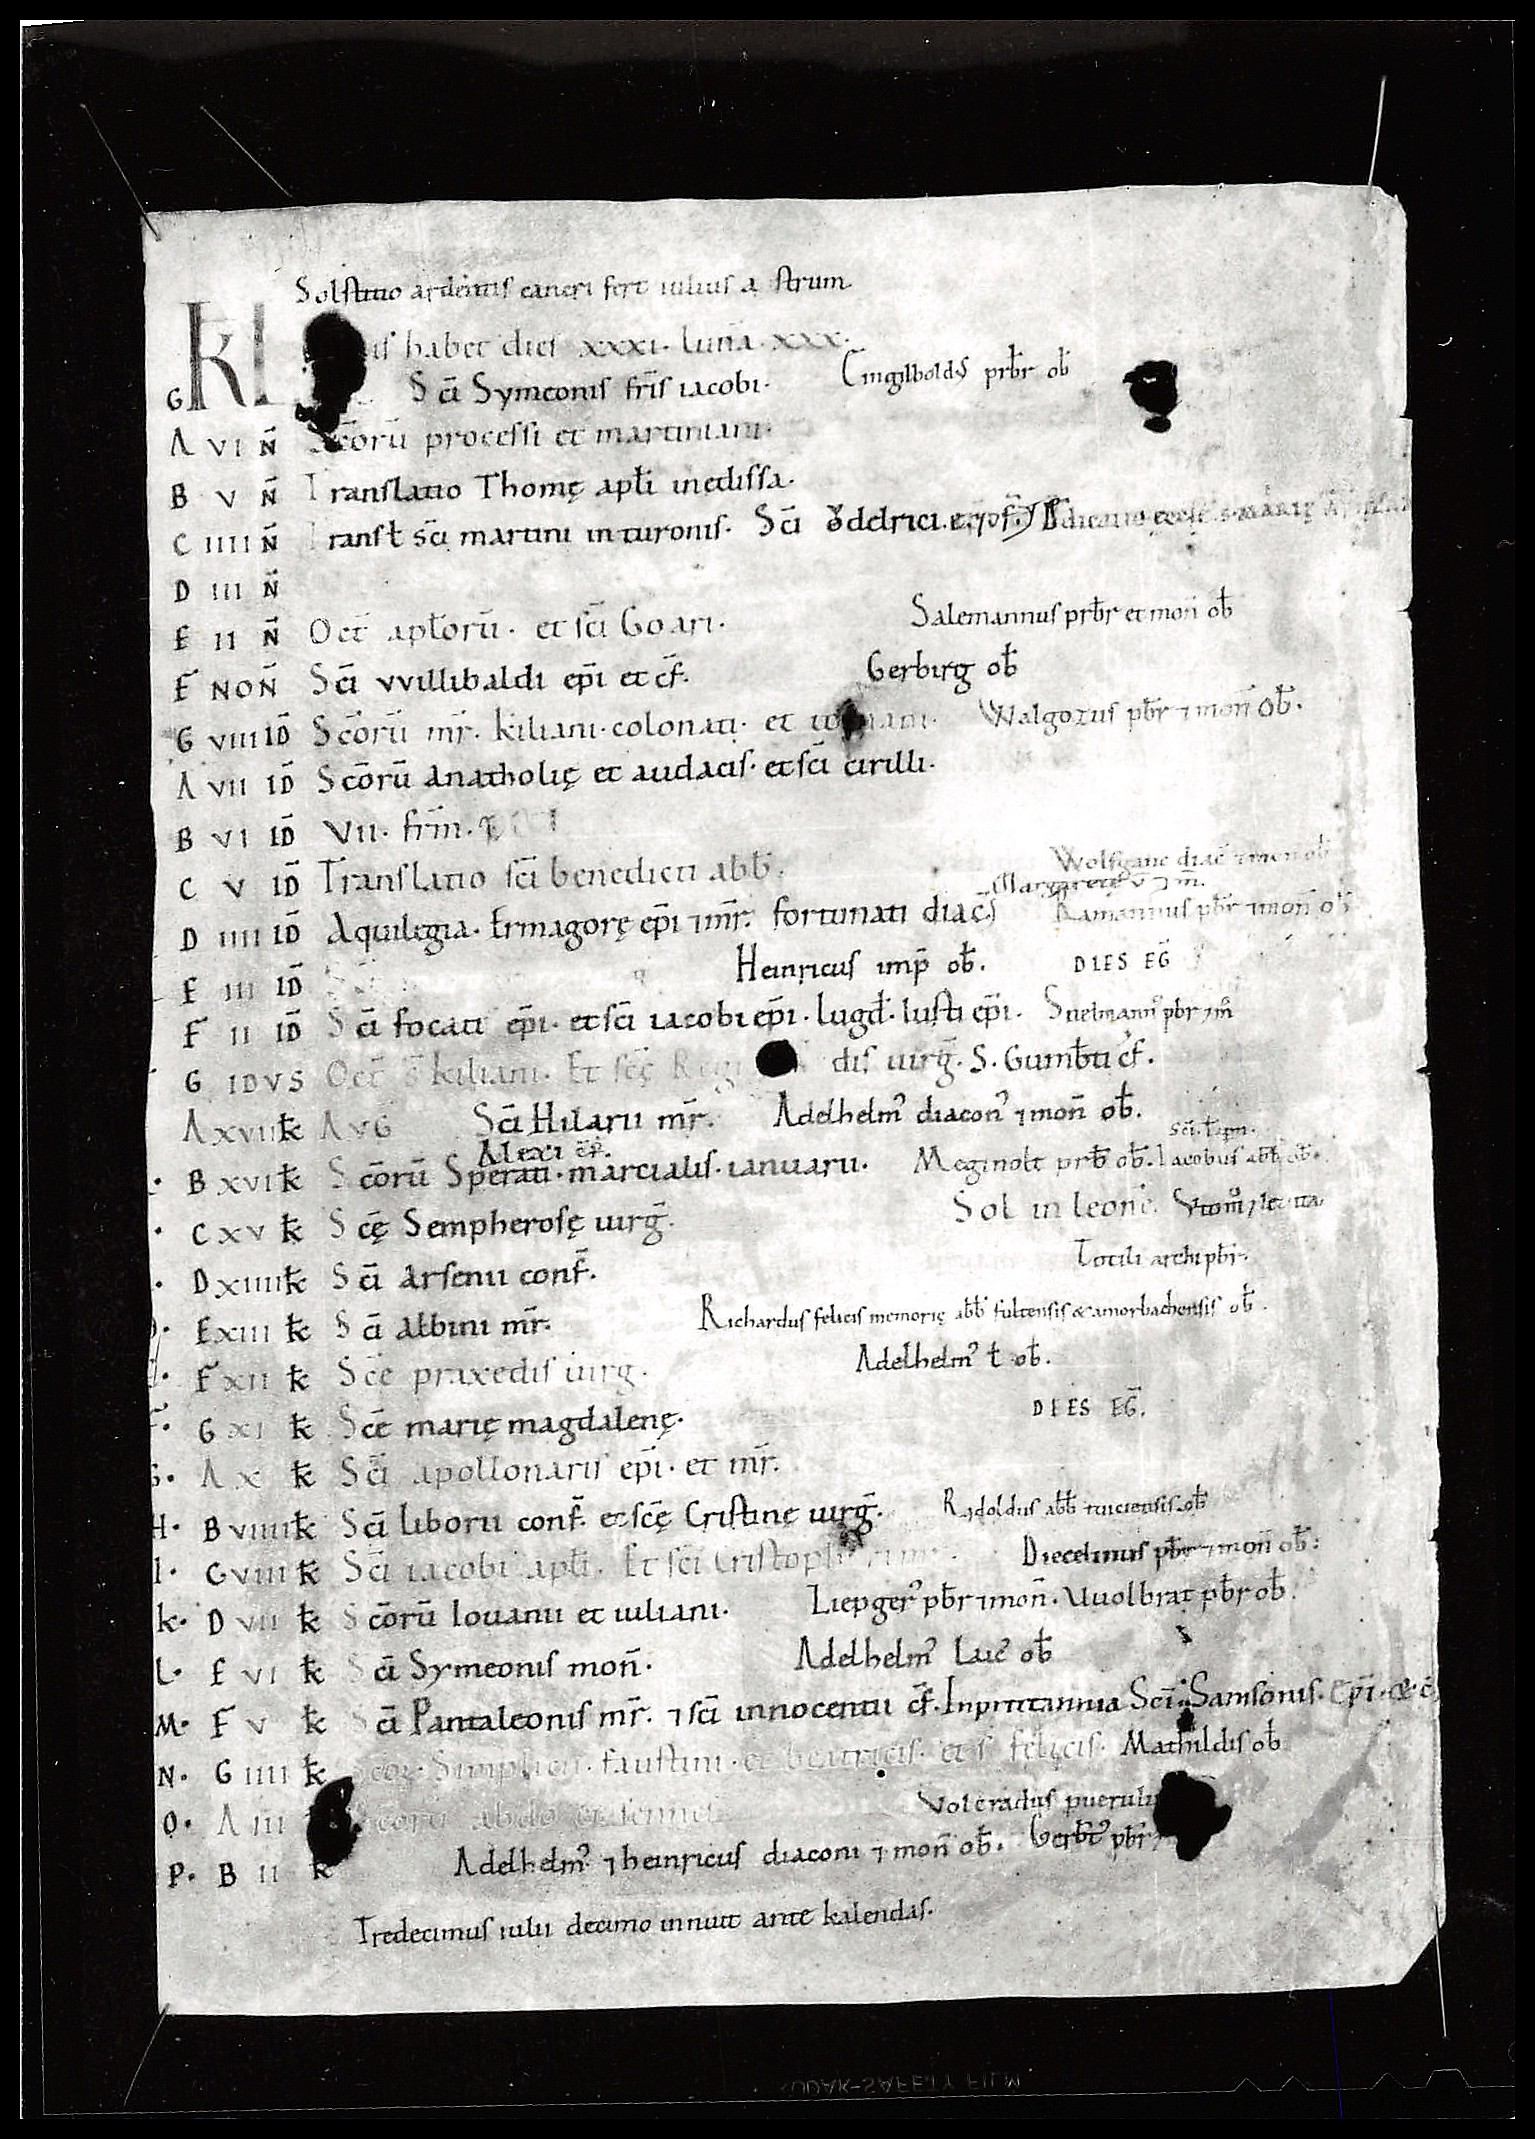 Solstitio ardentis cancri fert iulius astrum
KL is habet dies xxxi. Luna. xxx.
G Sc̄i Symeonis fr̄is iacobi. Eingilbold9 prƀr oƀ
A VI N̄ Sc̄orū processi et martiniani.
B V N̄ Translatio Thomę apłi in edissa.
C IIII N̄ Transł sc̄i martini in turonis. Sc̄i Ǒdelrici.
D III N̄
E II N̄ Oct̄ apłorū. et sc̄i Goari. Salemannus prƀr et mon̄ oƀ
F NON̄ Sc̄i vvillibaldi ep̄i et c̄f. Gerbirg oƀ
G VIII ID̄ Sc̄orū mr̄. kiliani. colonati. et Walgozus pƀr ⁊ mon̄ Oƀ.
A VII ID̄ Sc̄orū anatholię et audacis. et sc̄i cirilli.
B VI ID̄ VII. fr̄m.
C V ID̄ Translatio sc̄i benedicti abƀ. Wolfganc diac̄ ⁊ mon oƀ
Margaretę v̄ ⁊ m̄.
D IIII ID̄ Aquilegia. Ermagorę ep̄i ⁊ mr̄. fortunati diac̄. pƀr ⁊ mon̄ oƀ
E III ID̄ Heinricus imp̄ oƀ. DIES EḠ
F II ID̄ Sc̄i focati ep̄i. et sc̄i iacobi ep̄i. lugđ. Iusti ep̄i. pƀr ⁊ m̄
G IDVS Oct̄ s̄ kiliani. Et sc̄ę dis uirḡ. S. Gumƀti c̄f.
A XVII k̄ AVG Sc̄i Hilarii mr̄. Adelhelm9 diacon9 ⁊ mon̄ oƀ.
Alexi c̄f.
B XVI k̄ Sc̄orū Sperati. marcialis. ianuarii. Meginolt prƀ oƀ. Iacobus abƀ oƀ.
C XV k̄ Sc̄ę Sempherosę uirḡ. Sol in leone.
Totili archipƀr.
D XIIII k̄ Sc̄i arsenii conf̄.
E XIII k̄ Sc̄i albini mr̄. Richardus felicis memorię abƀ fultensis & amorbachensis oƀ.
F XII k̄ Sc̄ē praxedis uirg. Adelhelm9 ł oƀ.
G XI k̄ Sc̄ē marię magdalenę. DIES EḠ.
G. A X k̄ Sc̄i apollonaris ep̄i. et mr̄.
H. B VIIII k̄ Sc̄i liborii conf̄. et sc̄ę Cristinę uirḡ. Rǒdoldus abƀ tuiciensis oƀ
I. C VIII k̄ Sc̄i iacobi apłi. Et sc̄i Diecelinus pƀr ⁊ mon̄ oƀ:
k. D VII k̄ Sc̄orū Iouanii et iuliani. Liepger9 pƀr ⁊ mon̄. Vuolbrat pƀr oƀ.
L. E VI k̄ Sc̄i Symeonis mon̄. Adelhelm9 Laic9 oƀ
M. F V k̄ Sc̄i Pantaleonis mr̄. ⁊ sc̄i innocentii c̄f. In prittannia Sc̄i Samsonis. Ep̄i. & c̄
N. G IIII k̄ Simplicii. faustini. et beatricis. et s̄ felicis. Mathildis oƀ
O. A III Sc̄orū abdo et sennes Volcradus puerulus
P. B II k̄ Adelhelm9 ⁊ heinricus diaconi ⁊ mon̄ oƀ. pƀr
Tredecimus iulii decimo innuit ante kalendas.